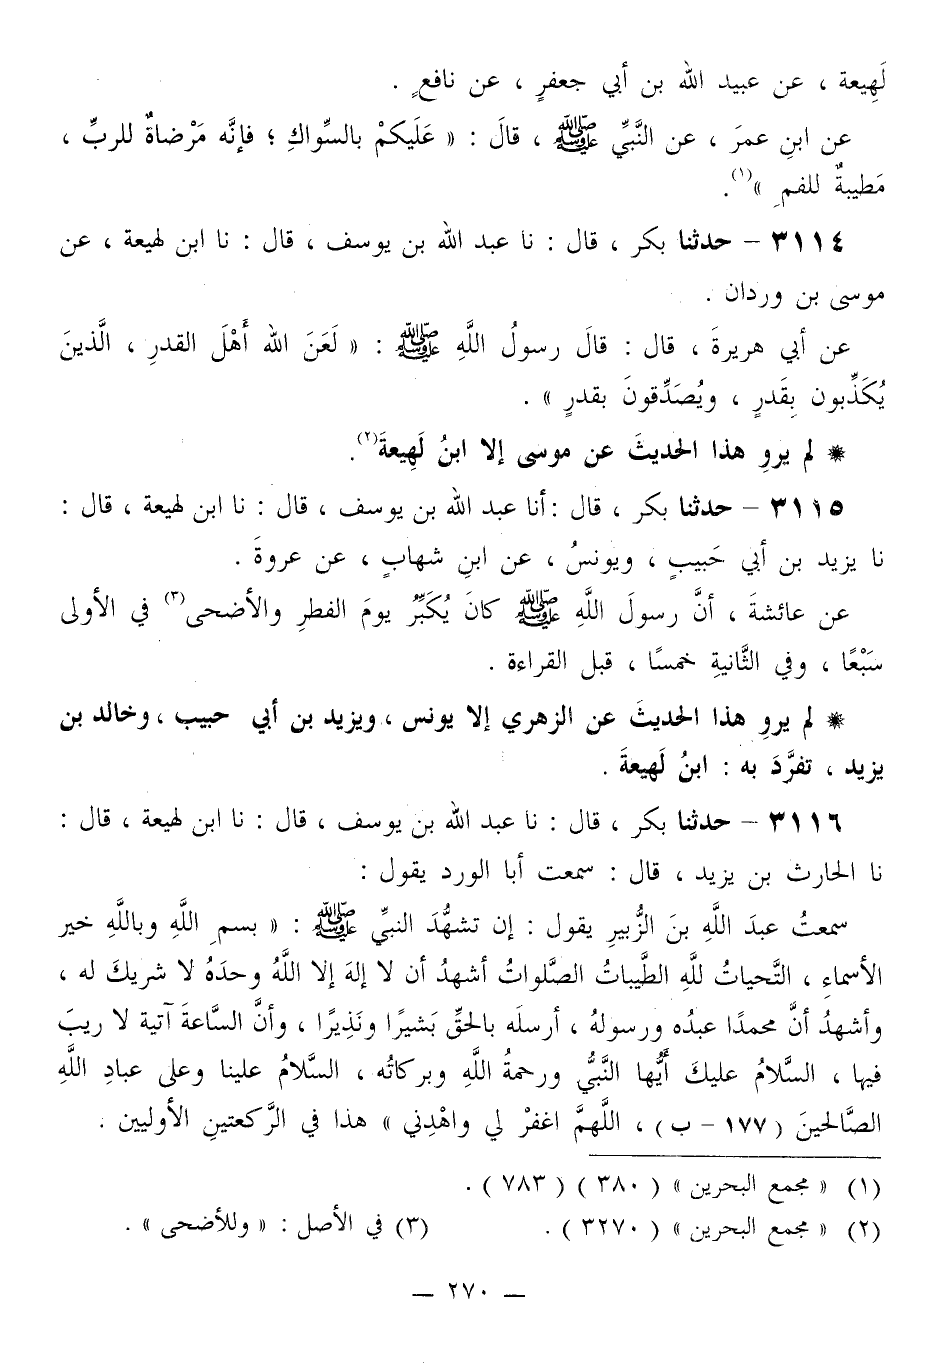 لَهِيعة ، عن عبيد الله بن أبي جعفرٍ ، عن نافعٍ .
عن ابنِ عمرَ ، عن النَّبيِّ ﷺ ، قالَ : « عَلَيكمْ بالسِّواكِ ؛ فإنَّه مَرْضاةٌ للربِّ ،
مَطيبةٌ للفمِ »(١).
٣١١٤ – حدثنا بكر ، قال : نا عبد الله بن يوسف ، قال : نا ابن لهيعة ، عن
موسى بن وردان .
عن أبي هريرةَ ، قال : قالَ رسولُ اللَّهِ ﷺ : « لَعَنَ الله أَهْلَ القدرِ ، الَّذينَ
يُكَذِّبون بِقَدرٍ ، ويُصَدِّقونَ بقدرٍ » .
* لم يروِ هذا الحديثَ عن موسى إلا ابنُ لَهِيعةَ(٢).
٣١١٥ – حدثنا بكر ، قال : أنا عبد الله بن يوسف ، قال : نا ابن لهيعة ، قال :
نا يزيد بن أبي حَبيبٍ ، ويونسُ ، عن ابنِ شهابٍ ، عن عروةَ .
عن عائشةَ ، أنَّ رسولَ اللَّهِ ﷺ كانَ يُكَبِّرُ يومَ الفطرِ والأضحى(٣) في الأولى
سَبْعًا ، وفي الثَّانيةِ خمسًا ، قبل القراءة .
* لم يروِ هذا الحديثَ عن الزهري إلا يونس ، ويزيد بن أبي حبيب ، وخالد بن
يزيد ، تفرَّدَ به : ابنُ لَهيعةَ .
٣١١٦ – حدثنا بكر ، قال : نا عبد الله بن يوسف ، قال : نا ابن لهيعة ، قال :
نا الحارث بن يزيد ، قال : سمعت أبا الورد يقول :
سمعتُ عبدَ اللَّهِ بنَ الزُّبيرِ يقول : إن تشهُّدَ النبيِّ ﷺ : « بسمِ اللَّهِ وباللَّهِ خير
الأسماءِ ، التَّحياتُ للَّهِ الطَّيباتُ الصَّلواتُ أشهدُ أن لا إلهَ إلا اللَّهُ وحدَهُ لا شريكَ له ،
وأشهدُ أنَّ محمدًا عبدُه ورسولهُ ، أرسلَه بالحقِّ بَشيرًا ونَذِيرًا ، وأنَّ السَّاعةَ آتية لا ريبَ
فيها ، السَّلامُ عليكَ أَيُّها النَّبيُّ ورحمةُ اللَّهِ وبركاتُه ، السَّلامُ علينا وعلى عبادِ اللَّهِ
الصَّالحينَ ( ١٧٧ – ب ) ، اللَّهمَّ اغفرْ لي واهْدِني » هذا في الرَّكعتينِ الأوليين .
(١) « مجمع البحرين » ( ٣٨٠ ) ( ٧٨٣ ) .
(٢) « مجمع البحرين » ( ٣٢٧٠ ) . (٣) في الأصل : « وللأضحى » .
— ٢٧٠ —